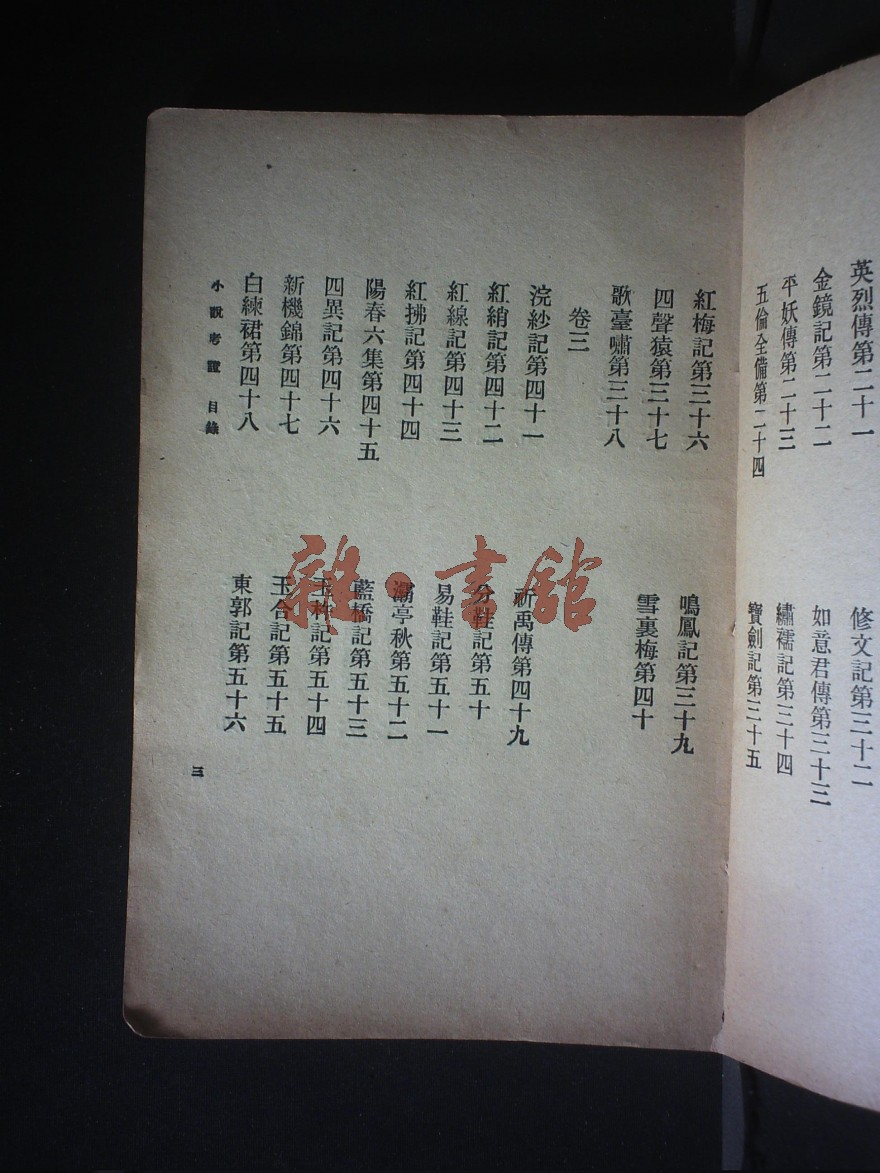 英烈傳第二十一
金鏡記第二十二
平妖傳第二十三
五倫全備第二十四
修文記第三十二
如意君傳第三十三
繡襦記第三十四
寶劍記第三十五
紅梅記第三十六
四聲猿第三十七
歌臺嘯第三十八
鳴鳳記第三十九
雪裏梅第四十
卷三
浣紗記第四十一
紅綃記第四十二
紅線記第四十三
紅拂記第四十四
陽春六集第四十五
四異記第四十六
新機錦第四十七
白練裙第四十八
祈禹傳第四十九
分鞋記第五十
易鞋記第五十一
灞亭秋第五十二
藍橋記第五十三
玉杵記第五十四
玉合記第五十五
東郭記第五十六
小說考證 目錄
三
雜·書館